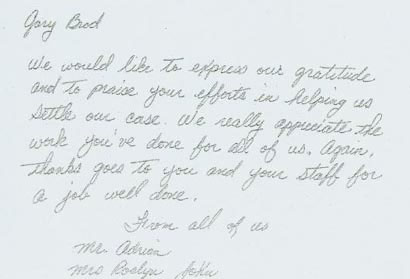 Gary Brod
We would like to express our gratitude
and to praise your efforts in helping us
settle our case. We really appreciate the
work you've done for all of us. Again,
thanks goes to you and your staff for
a job well done.
From all of us
Mr. Adrian
Mrs Roslyn John